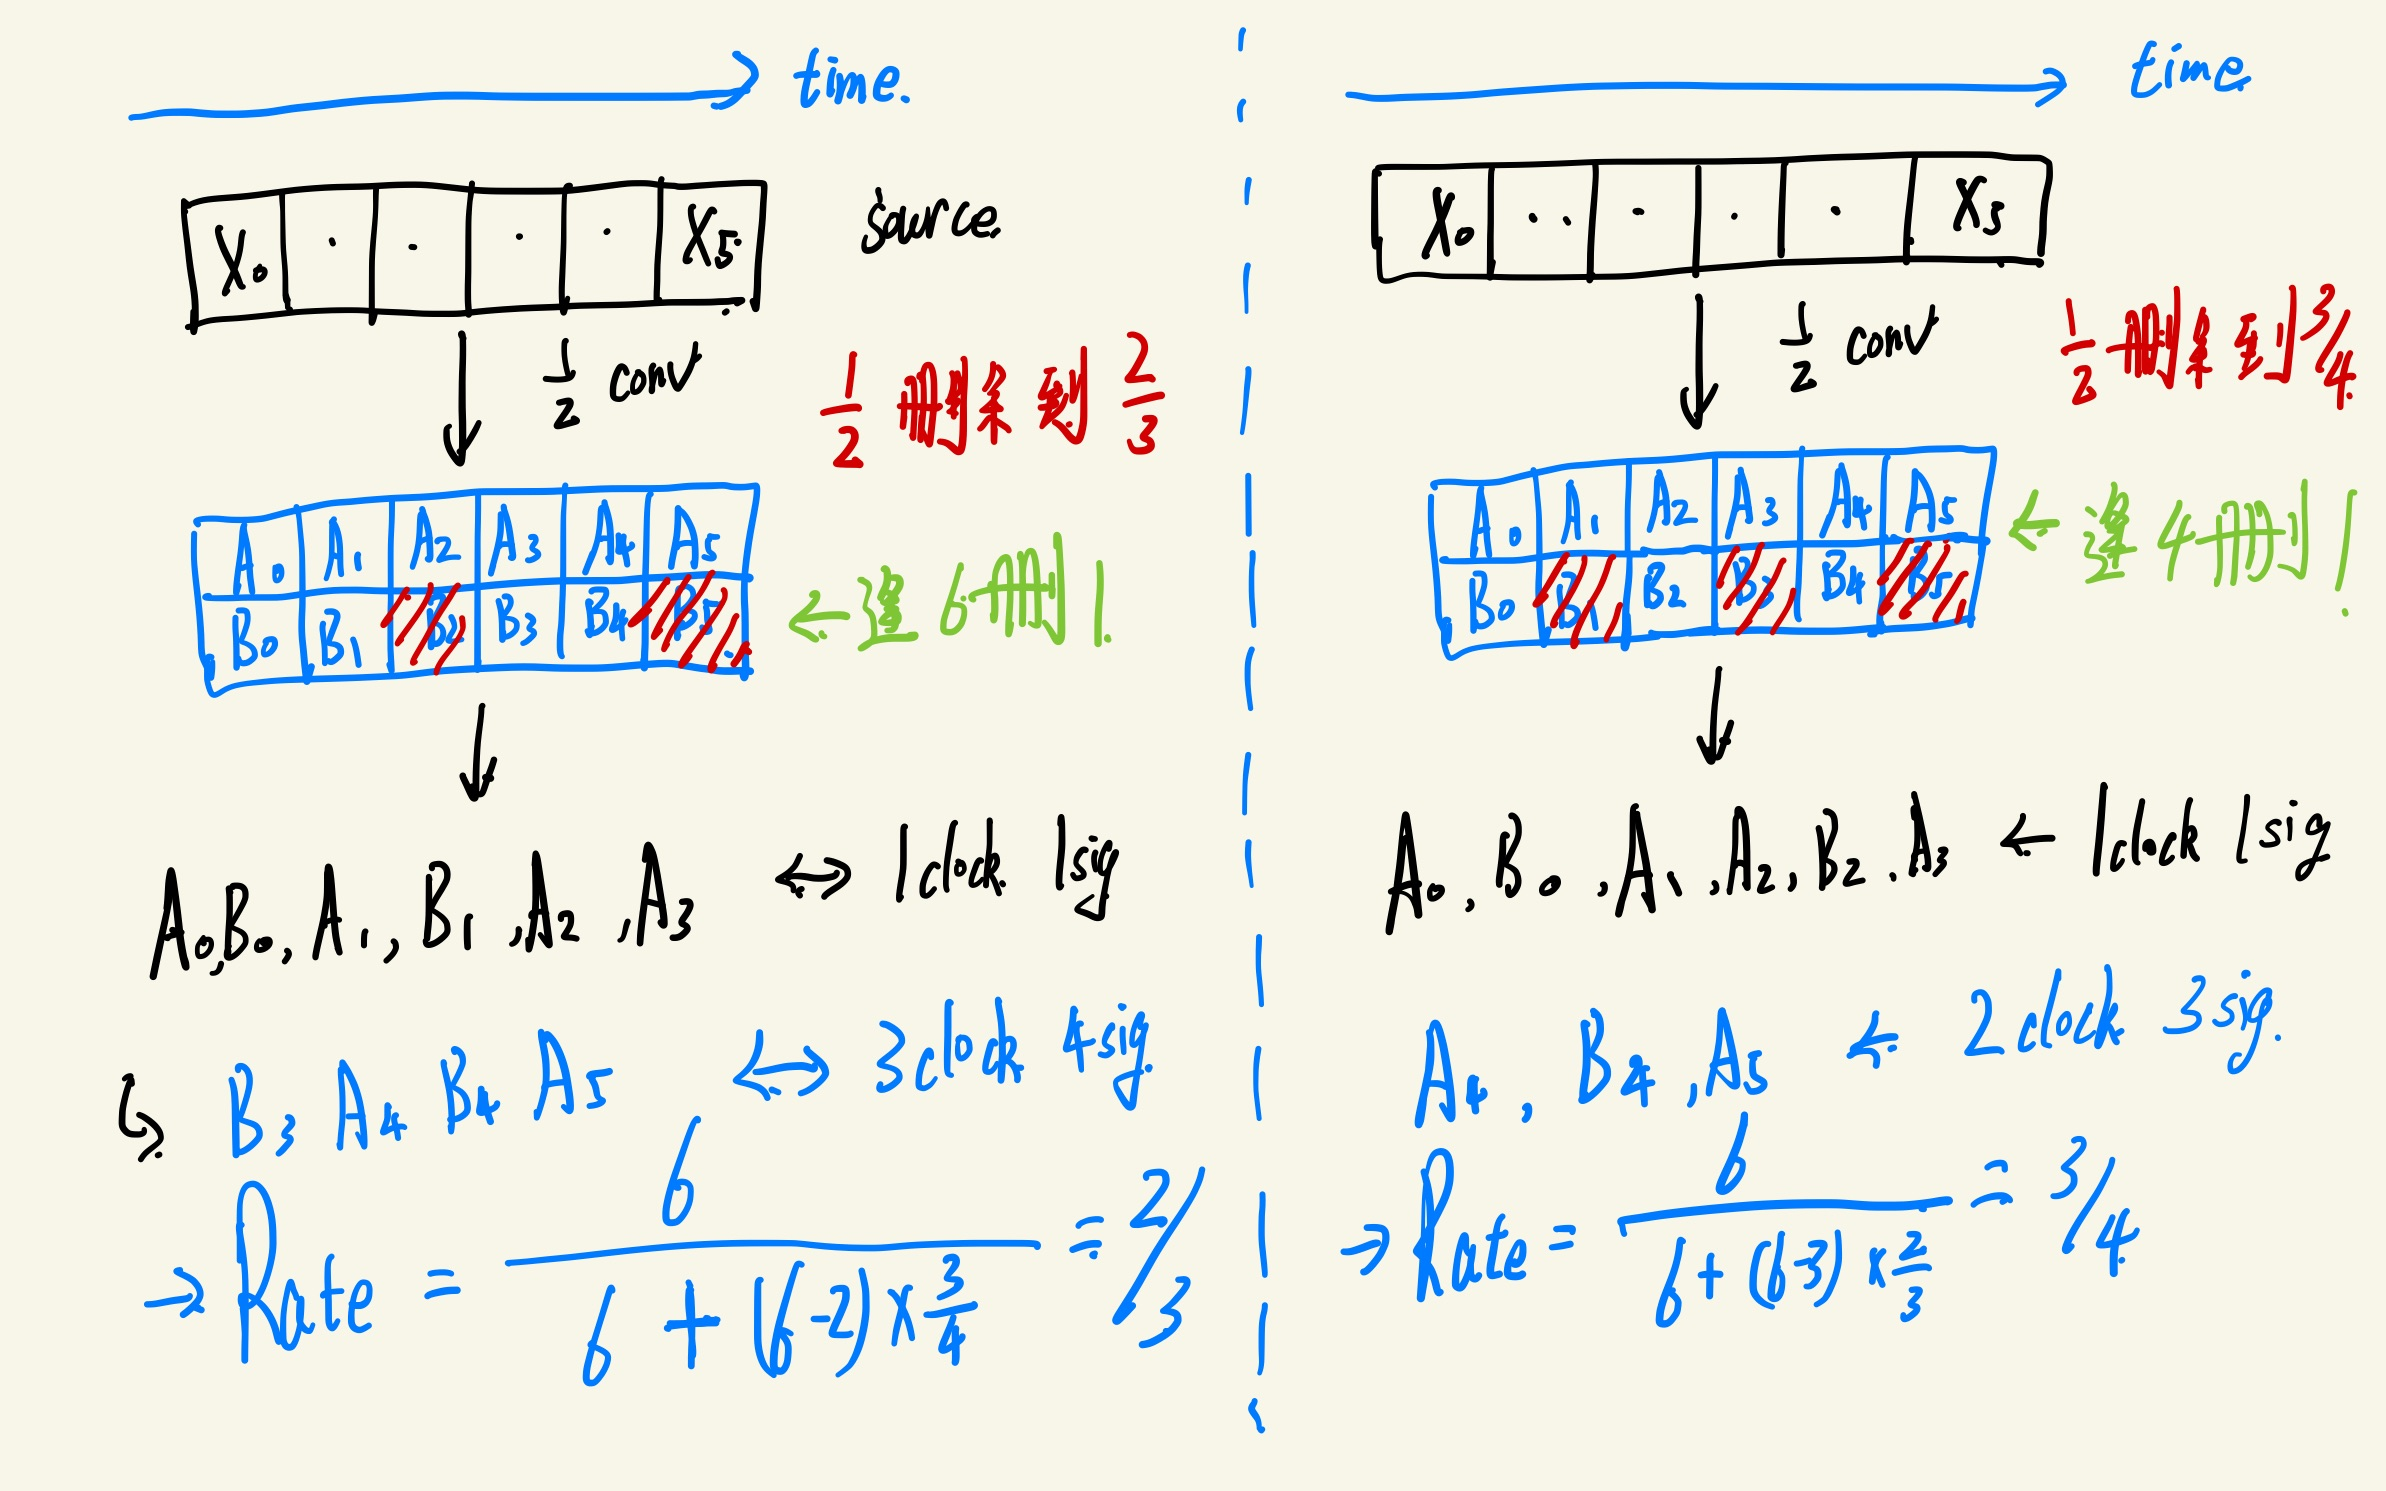 time.
X₀ · · · · X₅
source
1/2 conv
1/2 删余到 2/3
A₀ A₁ A₂ A₃ A₄ A₅
B₀ B₁ B₂ B₃ B₄ B₅
← 每6删1.
A₀, B₀, A₁, B₁, A₂, A₃ ↔ 1clock 1sig
↳ B₃ A₄ B₄ A₅ ↔ 3clock 4sig
→ Rate = 6 / (6 + (6-2) × 3/4) = 2/3
time
X₀ ·· · · · X₅
1/2 conv
1/2 删余到 3/4
A₀ A₁ A₂ A₃ A₄ A₅
B₀ B₁ B₂ B₃ B₄ B₅
← 每4删1.
A₀, B₀, A₁, A₂, B₂, A₃ ← 1clock 1sig
A₄, B₄, A₅ ← 2clock 3sig.
→ Rate = 6 / (6 + (6-3) × 2/3) = 3/4